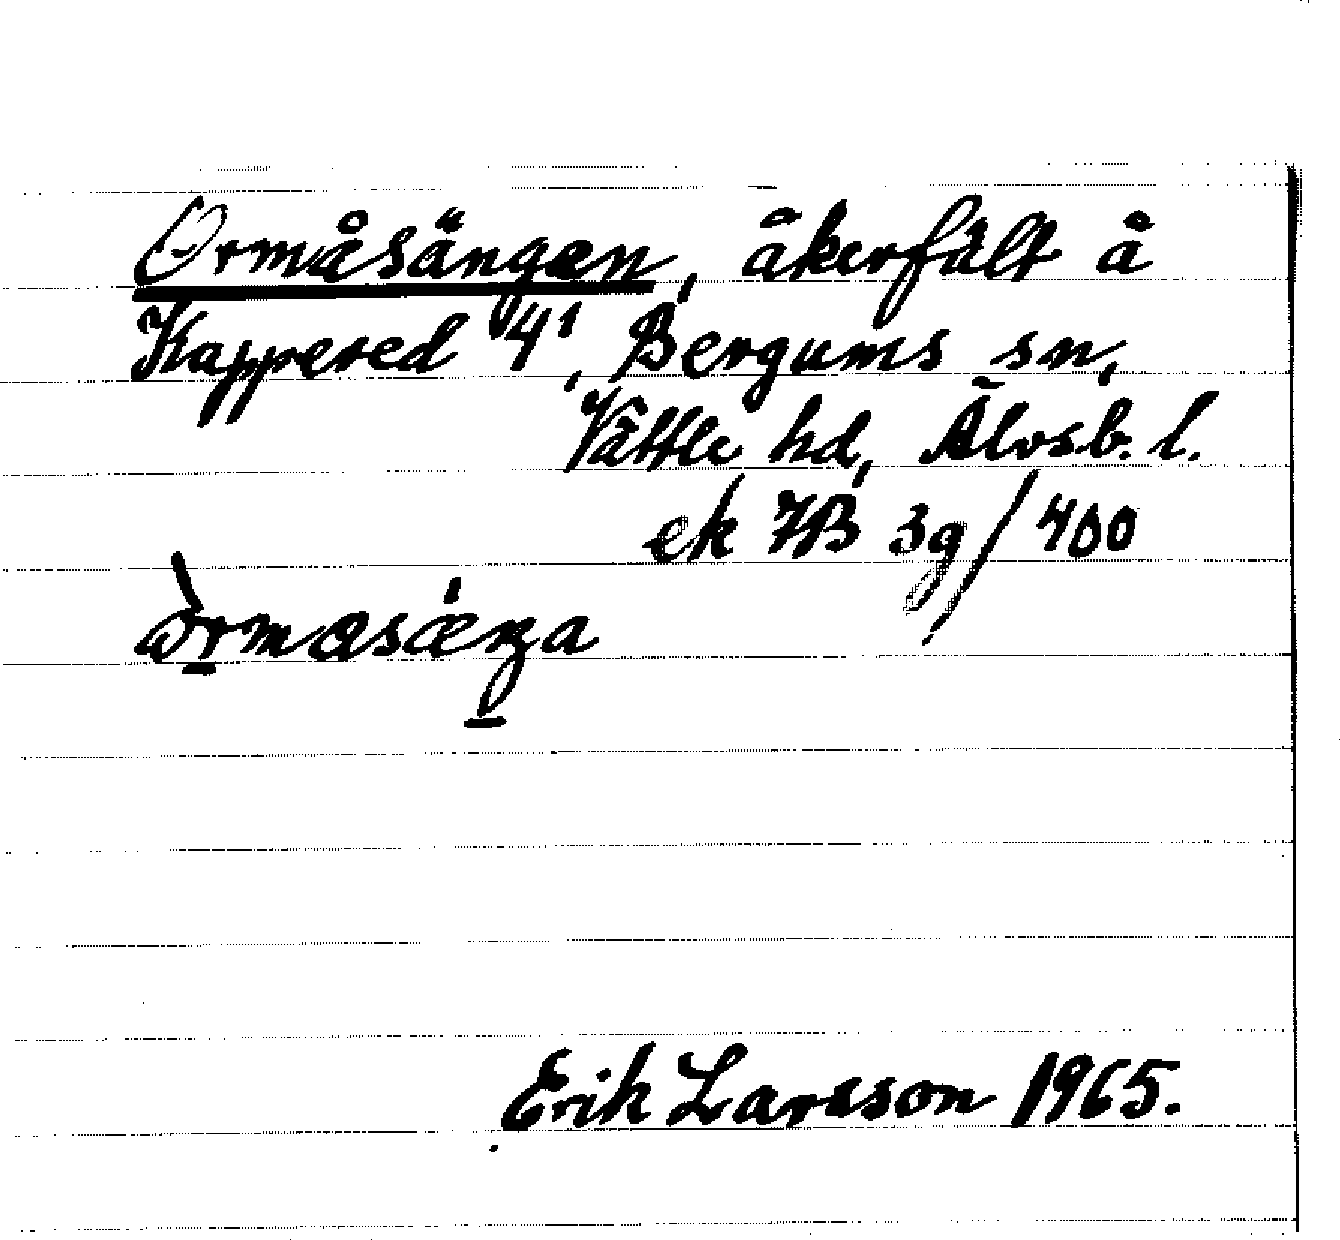 Ormåsängen, åkerfält å
Kappered 4¹, Bergums sn,
Vättle hd, Älvsb. l.
ek 7B 3g/400
Erik Larsson 1965.